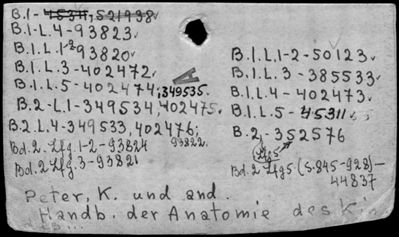 B.1-45311, 521938✓
B.1-L.4-93823✓
B.1.L.1-2-93820✓
B.1.L.3-402472✓
B.1.L.5-402474; 349535.
B.2-L.1-349534, 402475✓
B.2.L.4-349533, 402476;
Bd.2 Lfg.1-2-93824 93822✓
Bd.2 Lfg.3-93821
B.1.L.1-2-50123✓
B.1.L.3-385533✓
B.1.L.4-402473✓
B.1.L.5-45311✓
B.2-352576
Lfg5
Bd.2 Lfg5 (S.845-928)-
44837
Peter, K. und and.
Handb. der Anatomie des Kin